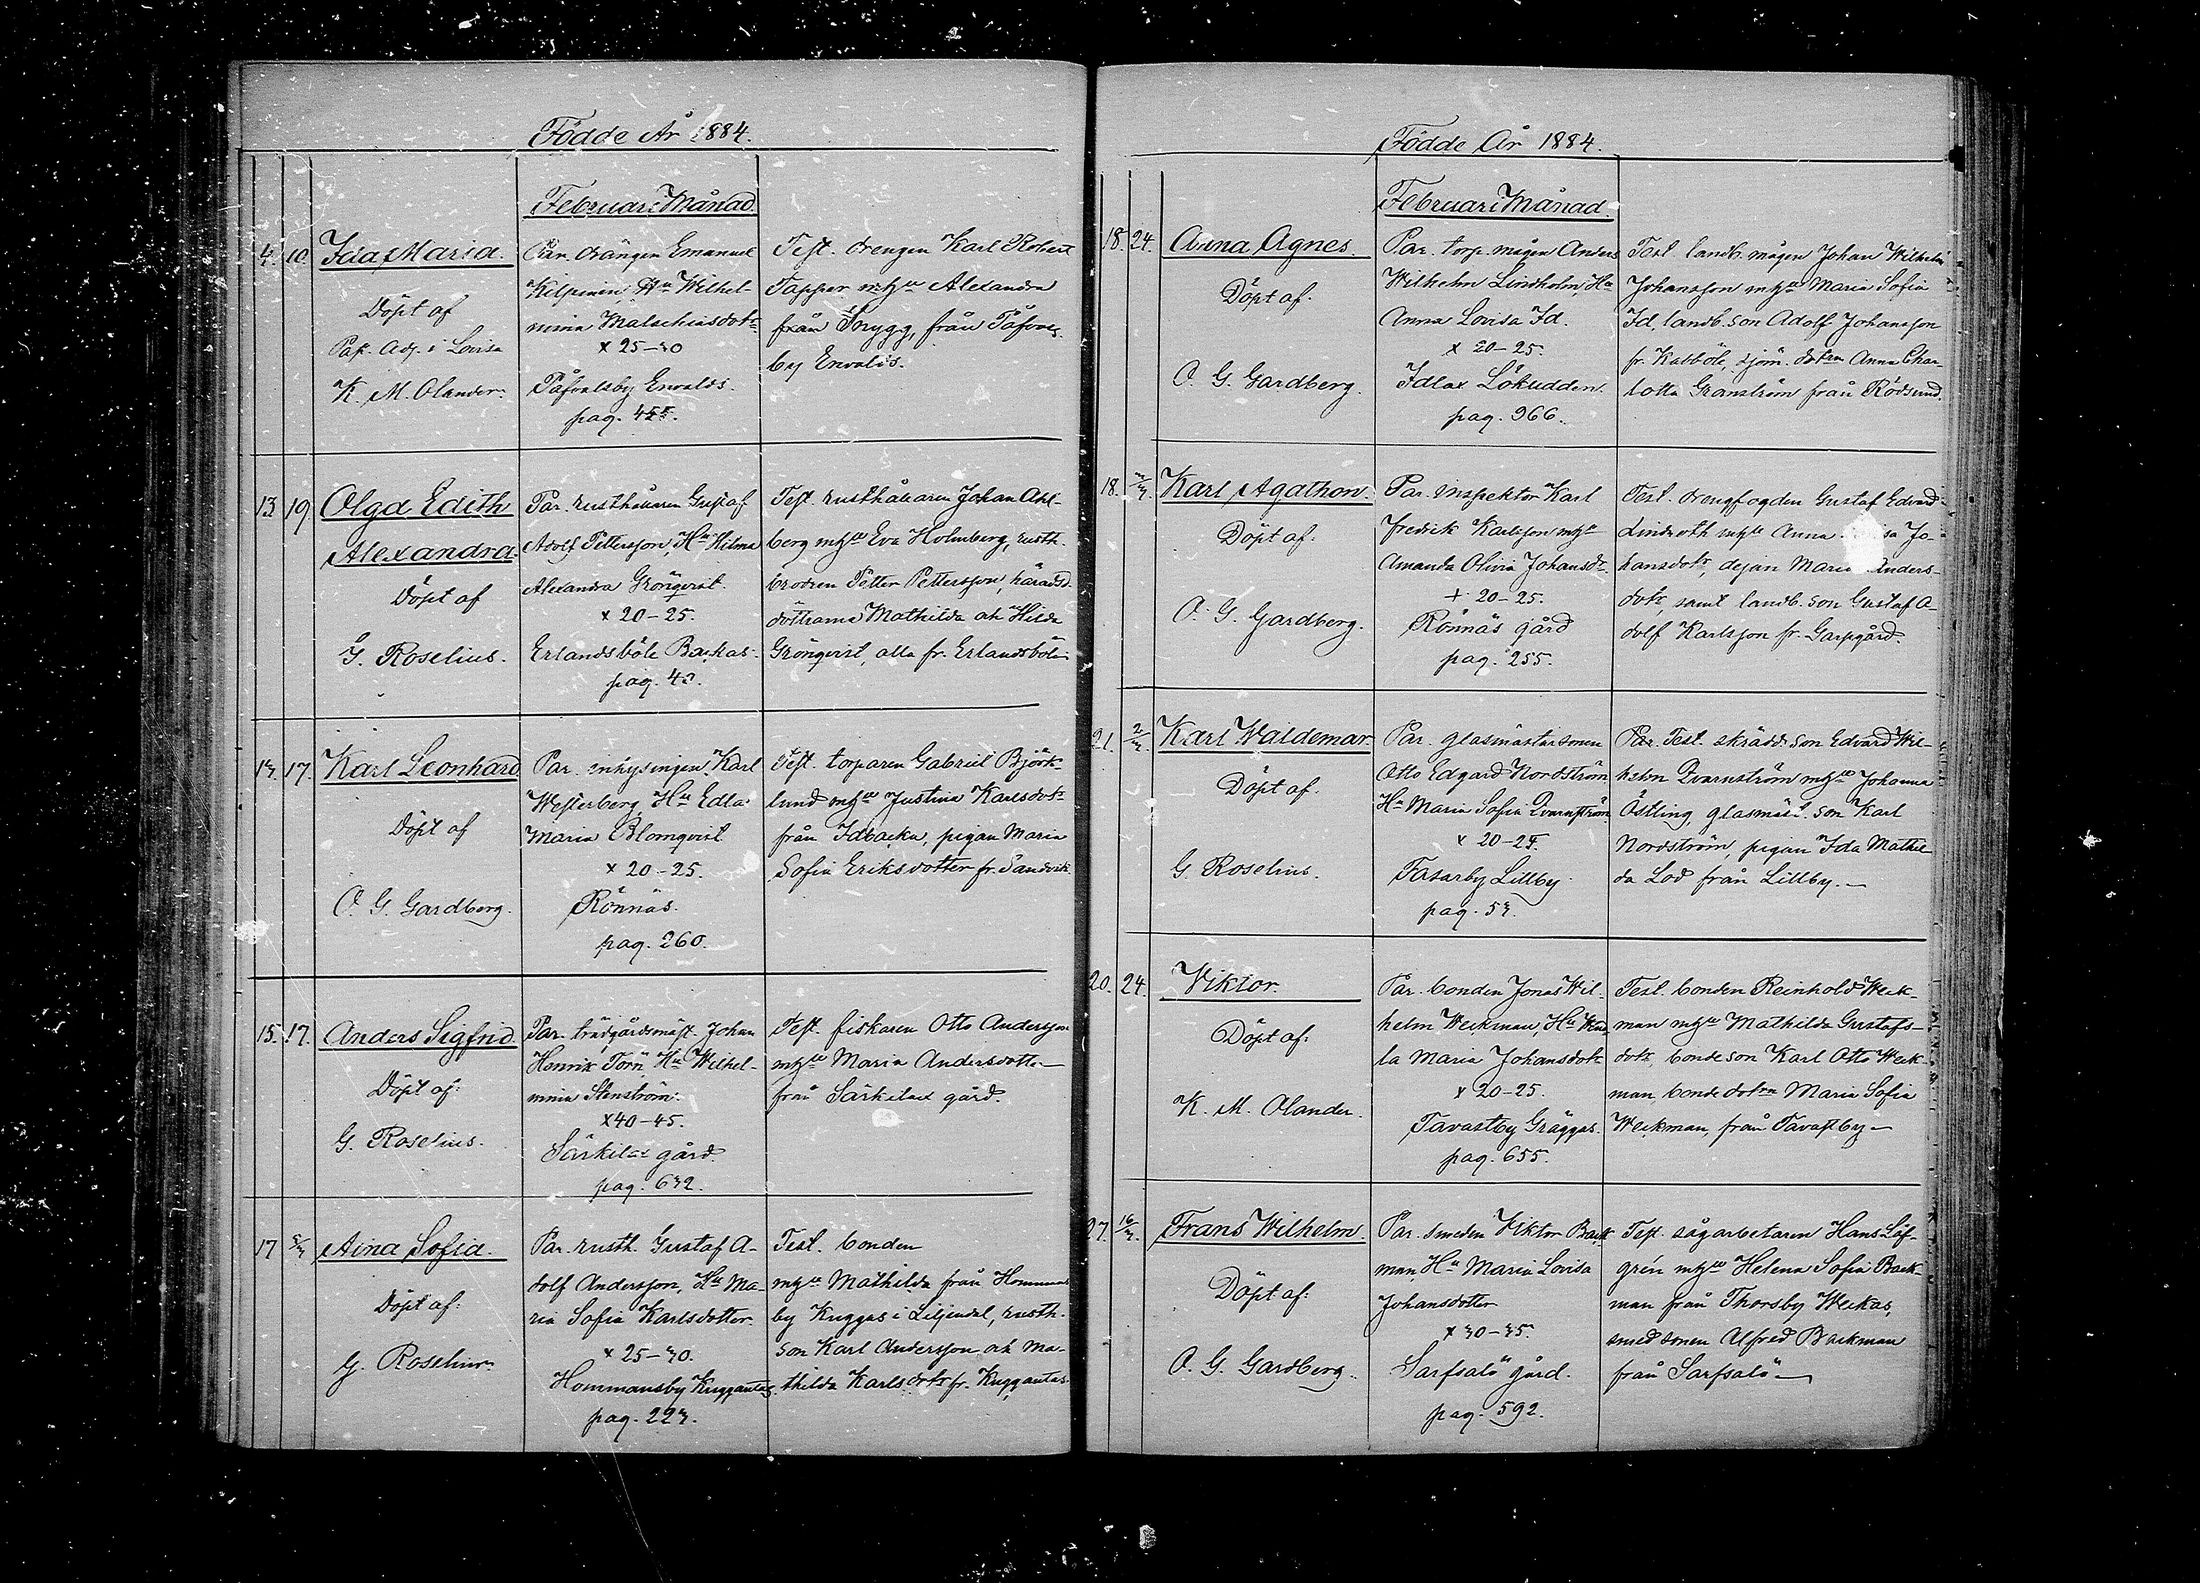 Födde År 1884.
Februari Månad.
4. 10. Ida Maria.
Döpt af
Past. Adj. i Lovisa
K. M. Olander.
Par. drängen Emanuel
Kilpinen, Hu Wilhel-
mina Malachiasdotr
x 25-30
Påfvalsby Envalds.
pag. 455.
Test. drengen Karl Robert
Tapper mhu Alexandra
från Snygg, från Påfvals-
by Envalds.
13. 19. Olga Edith
Alexandra.
Döpt af
G. Roselius.
Par. rusthållaren Gustaf
Adolf Pettersson, Hu Hilma
Alexandra Grönqvist.
x 20-25.
Erlandsböle Backas.
pag. 43.
Test. rusthållaren Johan Ahl-
berg mhu Eva Holmberg, rusth.
brodren Petter Pettersson, häradsd.
döttrarna Mathilda och Hilda
Grönqvist, alla fr. Erlandsböle
13. 17. Karl Leonhard
Döpt af
O. G. Gardberg.
Par. inhysingen Karl
Westerberg Hu Edla
Maria Blomqvist.
x 20-25.
Rönnäs.
pag. 260.
Test. torparen Gabriel Björk-
lund mhu Justina Karlsdotr
från Idbacka, pigan Maria
Sofia Eriksdotter fr. Sandvik.
15. 17. Anders Sigfrid.
Döpt af:
G. Roselius.
Par. trädgårdsmäst. Johan
Henrik Törn, Hu Wilhel-
mina Stenström.
x 40-45.
Särkilax gård.
pag. 632.
Test. fiskaren Otto Andersson
mhu Maria Andersdotter
från Särkilax gård.
17 2/3 Aina Sofia.
Döpt af:
G. Roselius
Par. rusth. Gustaf A-
dolf Andersson, Hu Ma-
ria Sofia Karlsdotter.
x 25-30.
Hommansby Kuggantas.
pag. 223.
Test. bonden
mhu Mathilda från Hommans
by Kuggas i Liljendal, rusth.
son Karl Andersson och Ma-
thilda Karlsdotr fr. Kuggantas.
Födde År 1884.
Februari Månad.
18. 24. Anna Agnes.
Döpt af.
O. G. Gardberg.
Par. torp. mågen Anders
Wilhelm Lindholm, Hu
Anna Lovisa Id.
x 20-25.
Idlax Lökudden.
pag. 966.
Test. landb. mågen Johan Wilhelm
Johansson mhu Maria Sofia
Id, landb. son Adolf Johansson
fr. Kabböle, sjöm. dotren Anna Char-
lotta Granström från Rödsund.
18. Karl Agathon.
Döpt af.
O. G. Gardberg.
Par. inspektor Karl
Fredrik Karlsson mhu
Amanda Olivia Johansdr.
+ 20-25.
Rönnäs gård
pag. 255.
Test. drengfogden Gustaf Edvard
Lindroth mhu Anna Jo-
hansdotr, dejan Maria Anders-
dotr, samt landb. son Gustaf A-
dolf Karlsson fr. Garpgård.
21. 2/3 Karl Waldemar.
Döpt af.
G. Roselius.
Par. glasmästarsonen
Otto Edgard Nordström
Hu Maria Sofia Qvarnström
x 20-25.
Tasarby Lillby.
pag. 53.
Par. Test. skrädd. son Edvard Wil-
helm Qvarnström mhu Johanna
Östling, glasmäst. son Karl
Nordström, pigan Ida Mathil-
da Lod från Lillby.—
20. 24. Viktor.
Döpt af:
K. M. Olander.
Par. bonden Jonas Wil-
helm Weckman, Hu Wen-
la Maria Johansdotr
x 20-25.
Tavastby Gräggas.
pag. 655.
Test. bonden Reinhold Weck-
man mhu Mathilda Gustafs-
dotr, bondeson Karl Otto Weck-
man, bondedotren Maria Sofia
Weckman, från Tavastby—
27. 16/3 Frans Wilhelm.
Döpt af:
O. G. Gardberg.
Par. smeden Viktor Back-
man, Hu Maria Lovisa
Johansdotter
x 30-35.
Sarfsalö gård.
pag. 592.
Test. sågarbetaren Hans Löf-
grén mhu Helena Sofia Back-
man från Thorsby Weckas,
smedsonen Alfred Backman
från Sarfsalö—